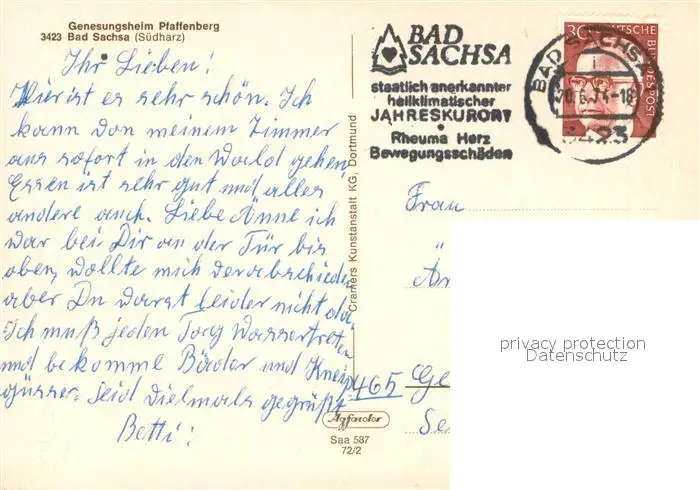 Genesungsheim Pfaffenberg
3423 Bad Sachsa (Südharz)
Ihr Lieben!
Hier ist es sehr schön. Ich
kann von meinem Zimmer
aus sofort in den Wald gehen
Essen ist sehr gut und alles
andere auch. Liebe Änne ich
war bei Dir an der Tür bis
oben, wollte mich verabschieden
aber Du warst leider nicht da.
Ich muß jeden Tag Wassertreten
und bekomme Bäder und Kneip
güsser. Seid vielmals gegrüßt
Betti!
Cramers Kunstanstalt KG, Dortmund
Agfacolor
Saa 587
72/2
BAD
SACHSA
staatlich anerkannter
heilklimatischer
JAHRESKURORT
Rheuma Herz
Bewegungsschäden
BAD SACHSA
1
20.6.74-18
3423
30 DEUTSCHE BUNDESPOST
Frau
465 Ge
privacy protection
Datenschutz